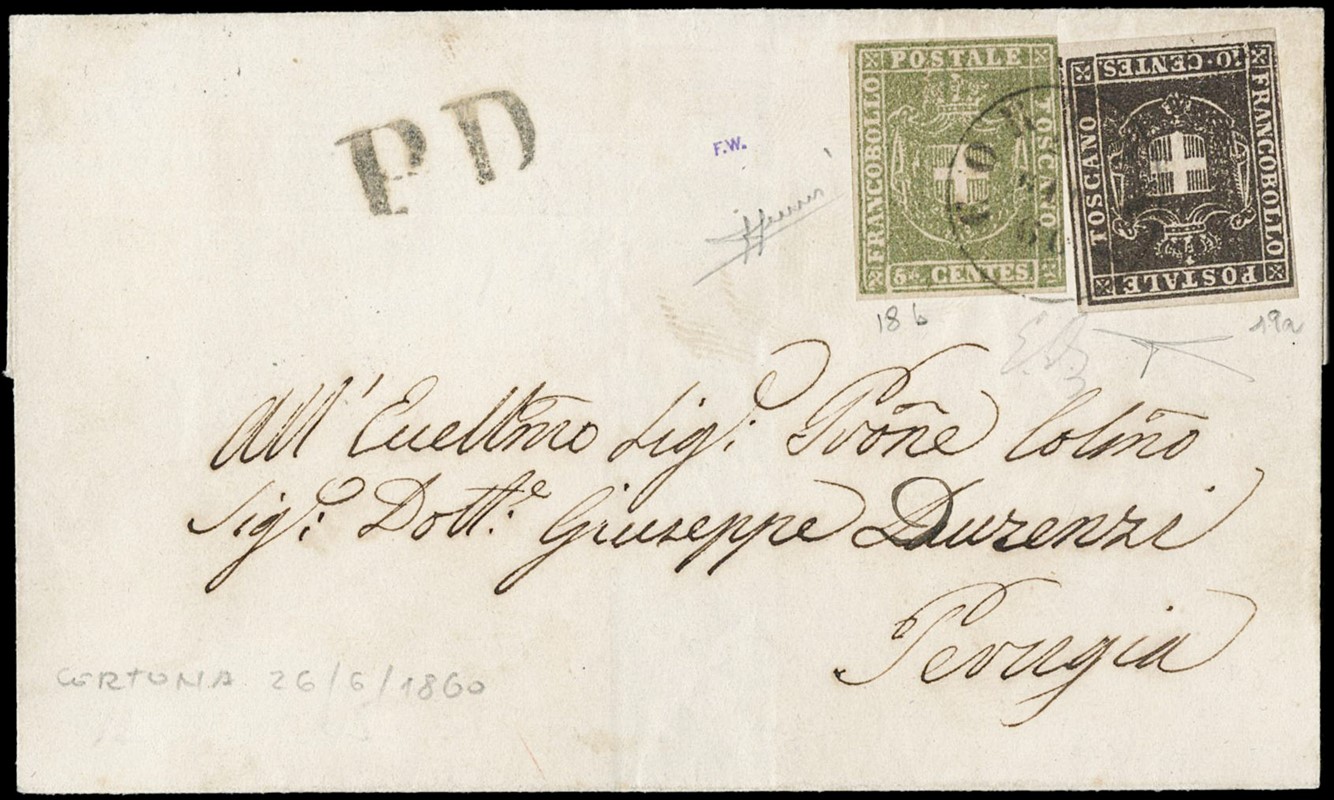 P.D
F.W.
POSTALE
FRANCOBOLLO
TOSCANO
5 CENTES.
CENTES.
TOSCANO
FRANCOBOLLO
POSTALE
COR
18 b
19a
All' Eccellmo Sig.r Prõne Colmõ
Sig.r Dott.e Giuseppe Durenzi
Perugia
CORTONA 26/6/1860